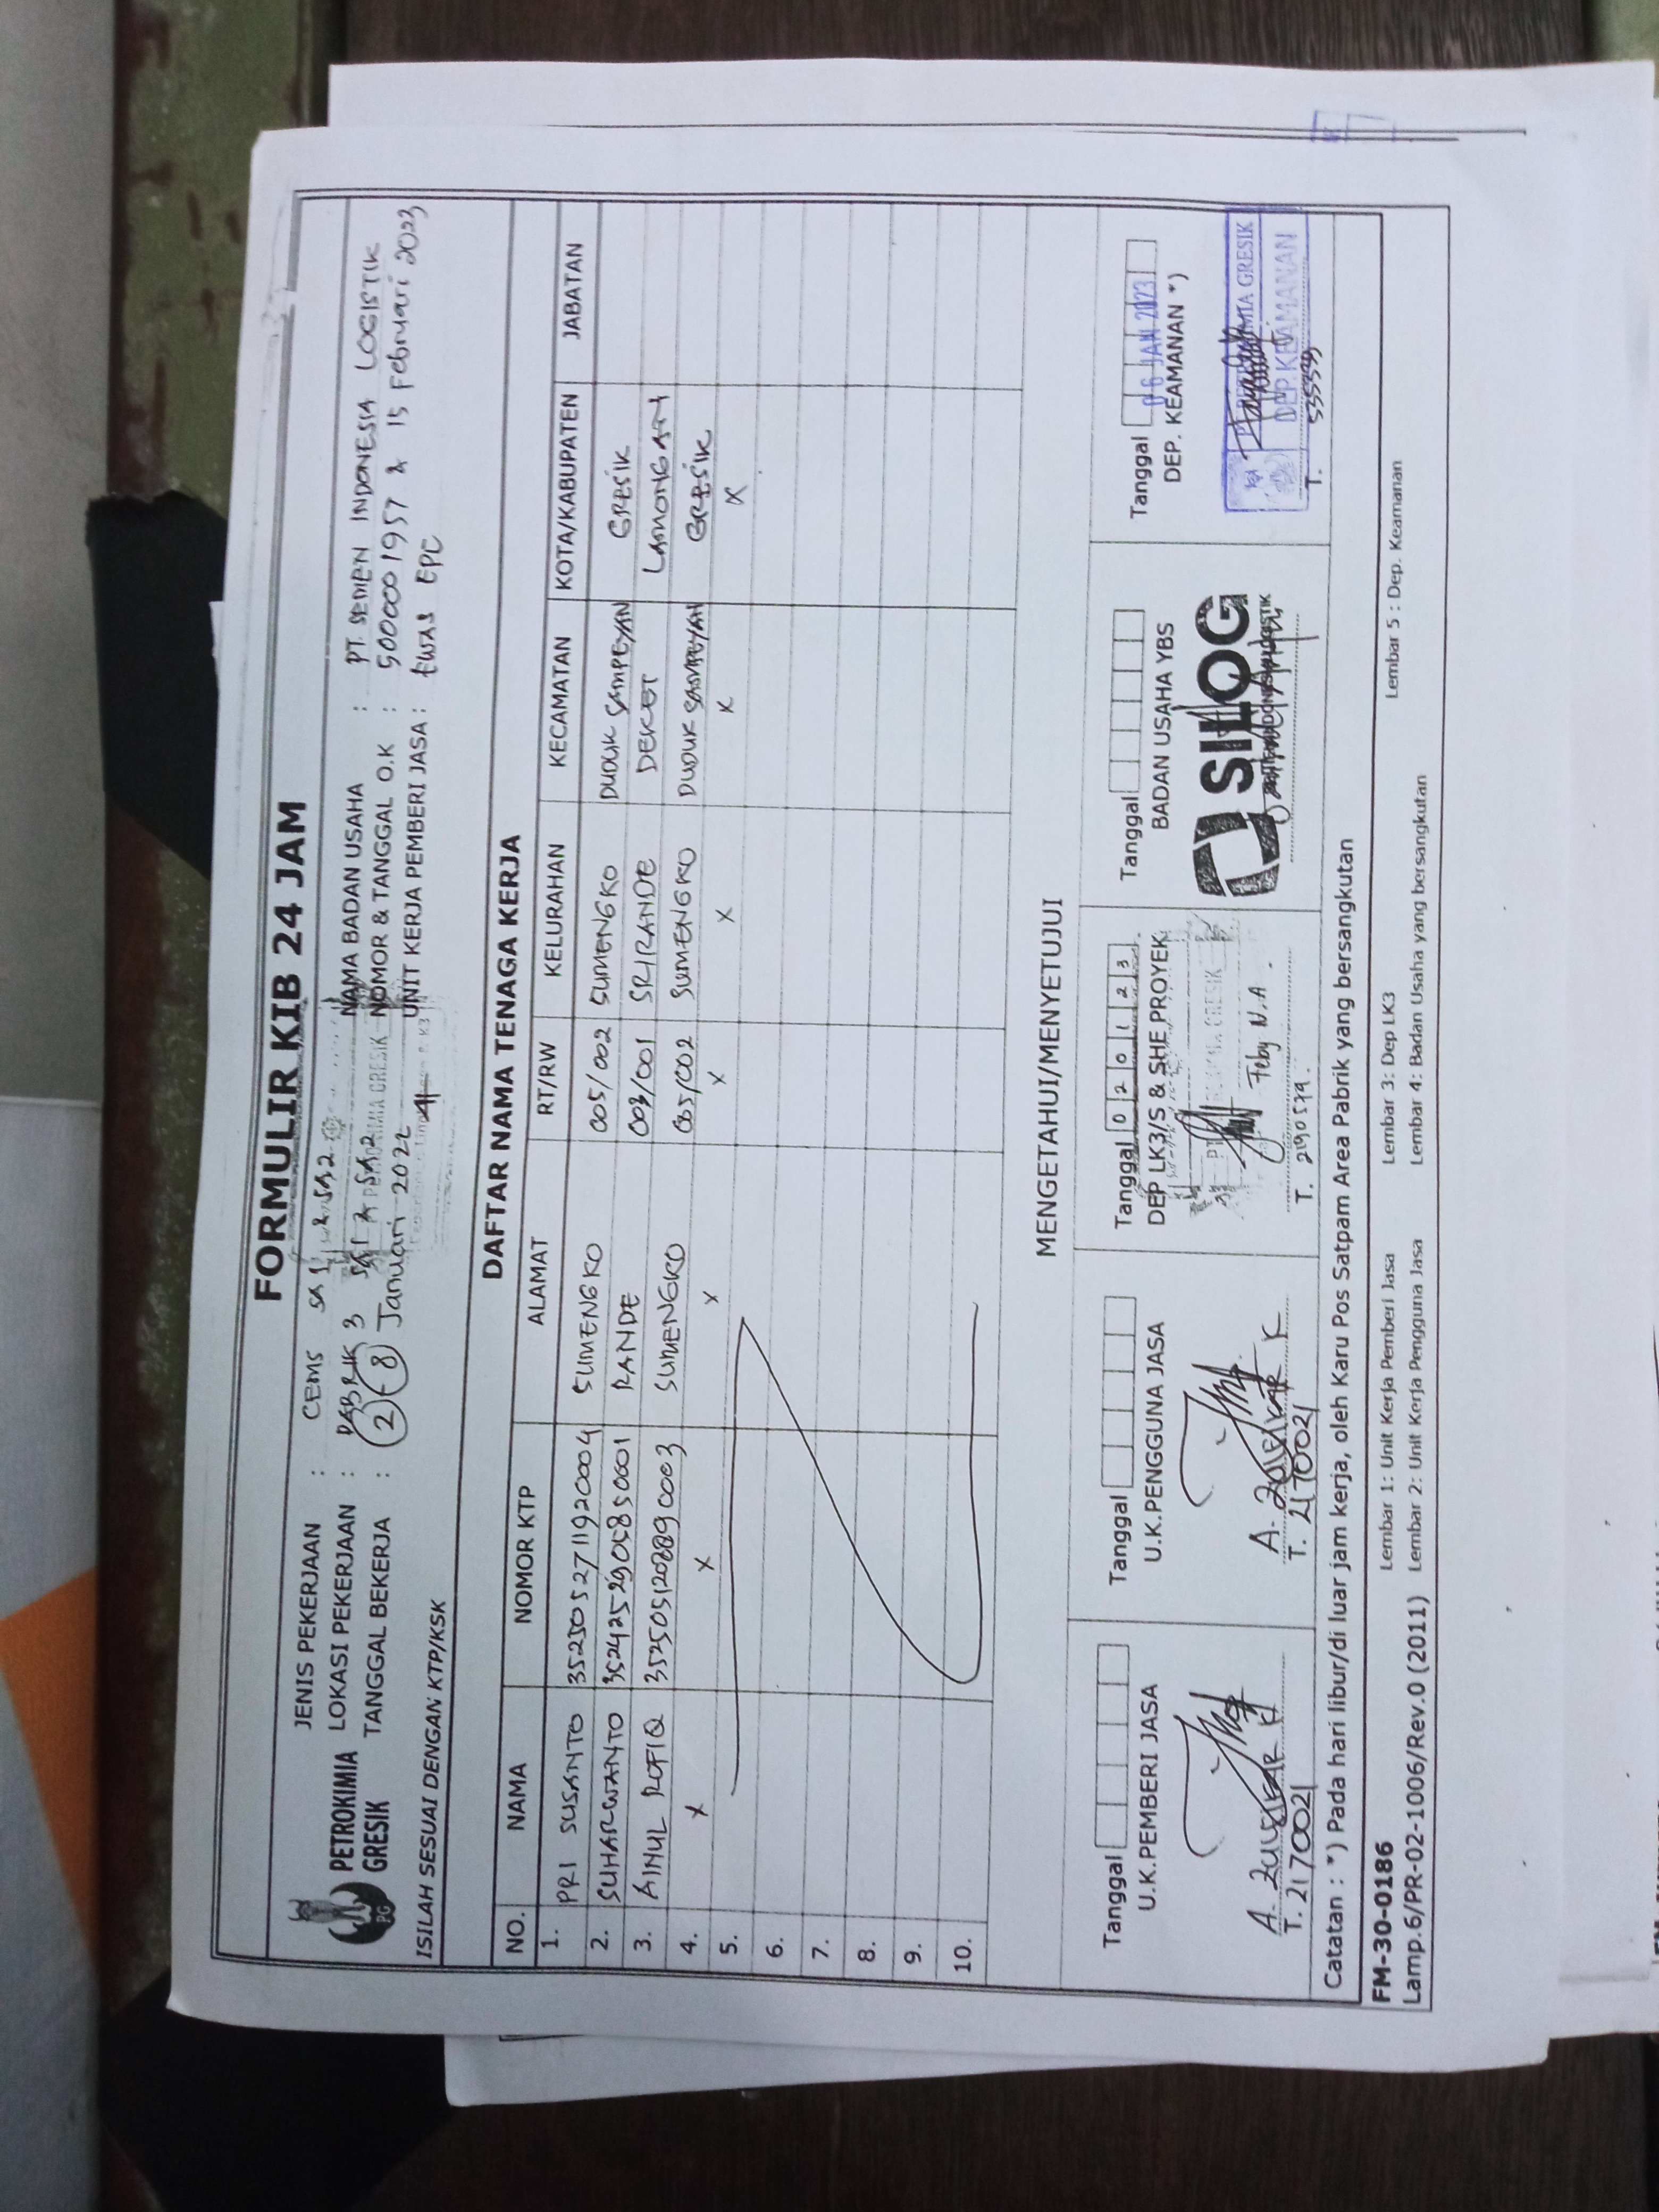 FORMULIR KIB 24 JAM
PETROKIMIA GRESIK
JENIS PEKERJAAN : CEMS SA 1 & SA2
LOKASI PEKERJAAN : PABRIK 3 SA 1 & SA2
TANGGAL BEKERJA : 2 - 8 Januari 2022
NAMA BADAN USAHA : PT. SEMEN INDONESIA LOGISTIK
NOMOR & TANGGAL O.K : 5000001957 & 15 Februari 2023
UNIT KERJA PEMBERI JASA : EPC
ISILAH SESUAI DENGAN KTP/KSK
DAFTAR NAMA TENAGA KERJA
NO. NAMA NOMOR KTP ALAMAT RT/RW KELURAHAN KECAMATAN KOTA/KABUPATEN JABATAN
1. PRI SUSANTO 3525052711920004 SUMENGKO 005/002 SUMENGKO DUDUK SAMPEYAN GRESIK
2. SUHARWANTO RANDE 003/001 SRIRANDE DEKET LAMONGAN
3. AINUL ROFIQ SUMENGKO 005/002 SUMENGKO DUDUK SAMPEYAN GRESIK
4. X X X X X X X
5.
6.
7.
8.
9.
10.
MENGETAHUI/MENYETUJUI
Tanggal
U.K.PEMBERI JASA
A. Zulfikar K
T. 2170021
Tanggal
U.K.PENGGUNA JASA
A. Zulfikar K
T. 2170021
Tanggal 020123
DEP LK3/S & SHE PROYEK
Feby N.A.
T. 2190579.
Tanggal
BADAN USAHA YBS
SILOG
Tanggal 06 JAN 2023
DEP. KEAMANAN *)
PETROKIMIA GRESIK
DEP. KEAMANAN
T.
Catatan : *) Pada hari libur/di luar jam kerja, oleh Karu Pos Satpam Area Pabrik yang bersangkutan
FM-30-0186
Lamp.6/PR-02-1006/Rev.0 (2011)
Lembar 1: Unit Kerja Pemberi Jasa
Lembar 2: Unit Kerja Pengguna Jasa
Lembar 3: Dep LK3
Lembar 4: Badan Usaha yang bersangkutan
Lembar 5 : Dep. Keamanan